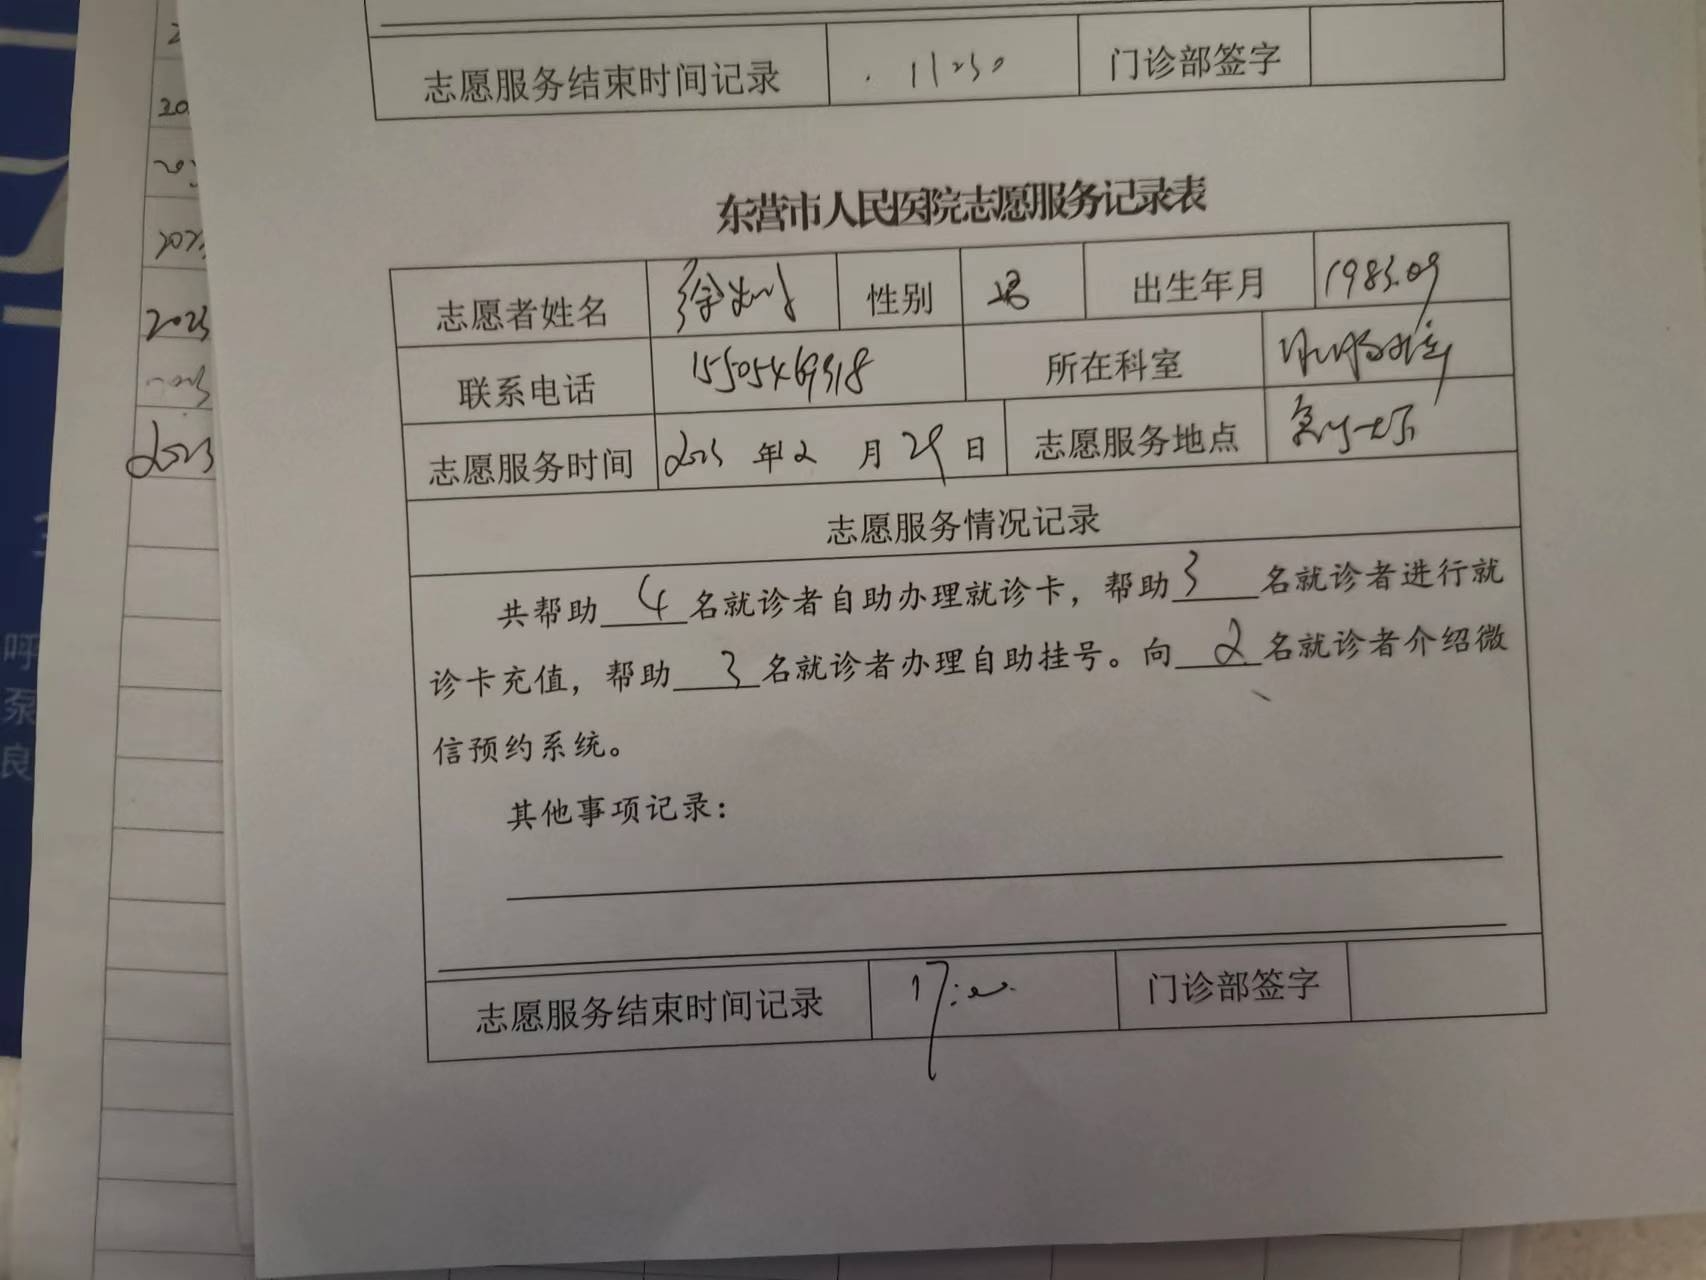 志愿服务结束时间记录 11:30 门诊部签字
东营市人民医院志愿服务记录表
志愿者姓名 徐 性别 男 出生年月 1983.09
联系电话 15505469318 所在科室
志愿服务时间 2023 年 2 月 29 日 志愿服务地点
志愿服务情况记录
共帮助 4 名就诊者自助办理就诊卡，帮助 3 名就诊者进行就
诊卡充值，帮助 3 名就诊者办理自助挂号。向 2 名就诊者介绍微
信预约系统。
其他事项记录：
志愿服务结束时间记录 17:00 门诊部签字
2023
2023
呼
泵
良